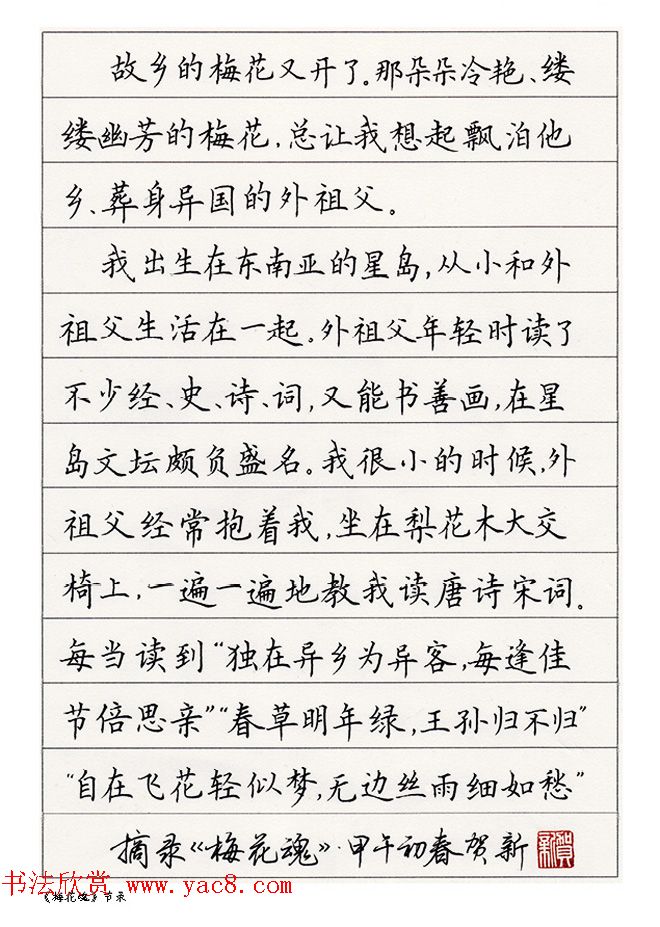 故乡的梅花又开了。那朵朵冷艳、缕
缕幽芳的梅花，总让我想起飘泊他
乡、葬身异国的外祖父。
我出生在东南亚的星岛，从小和外
祖父生活在一起。外祖父年轻时读了
不少经、史、诗、词，又能书善画，在星
岛文坛颇负盛名。我很小的时候，外
祖父经常抱着我，坐在梨花木大交
椅上，一遍一遍地教我读唐诗宋词。
每当读到“独在异乡为异客，每逢佳
节倍思亲”“春草明年绿，王孙归不归”
“自在飞花轻似梦，无边丝雨细如愁”
摘录《梅花魂》·甲午初春贺新
贺新
书法欣赏 www.yac8.com
《梅花魂》节录